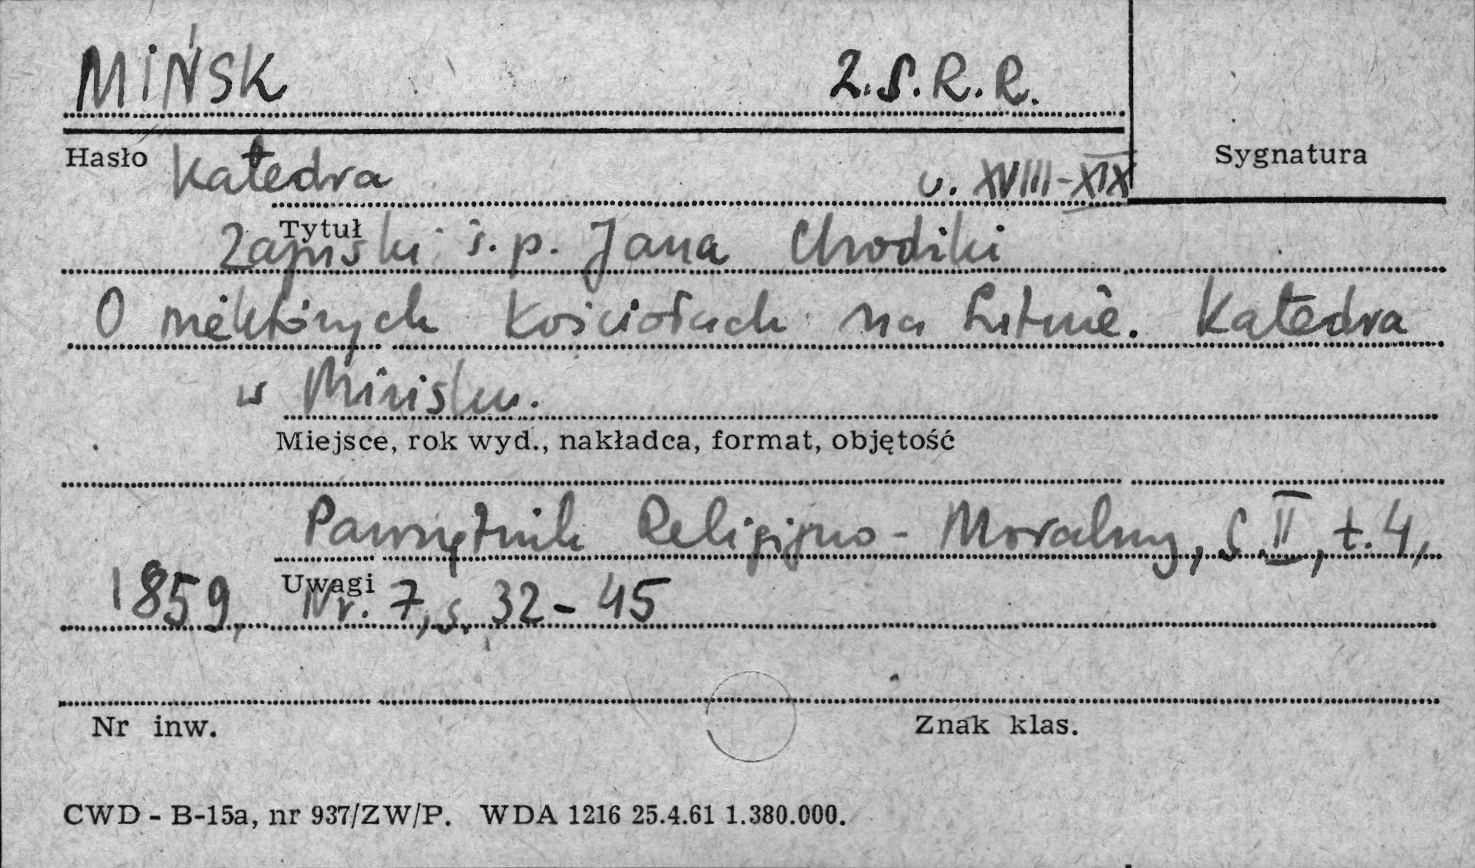 MIŃSK Z.S.R.R.
Hasło Katedra w. XVIII-XIX Sygnatura
Tytuł
Zapiski ś.p. Jana Chodźki
O niektórych kościołach na Litwie. Katedra
w Mińsku.
Miejsce, rok wyd., nakładca, format, objętość
Pamiętnik Religijno-Moralny, S.II, t.4,
Uwagi
1859, Nr. 7, s. 32-45
Nr inw. Znak klas.
CWD - B-15a, nr 937/ZW/P. WDA 1216 25.4.61 1.380.000.